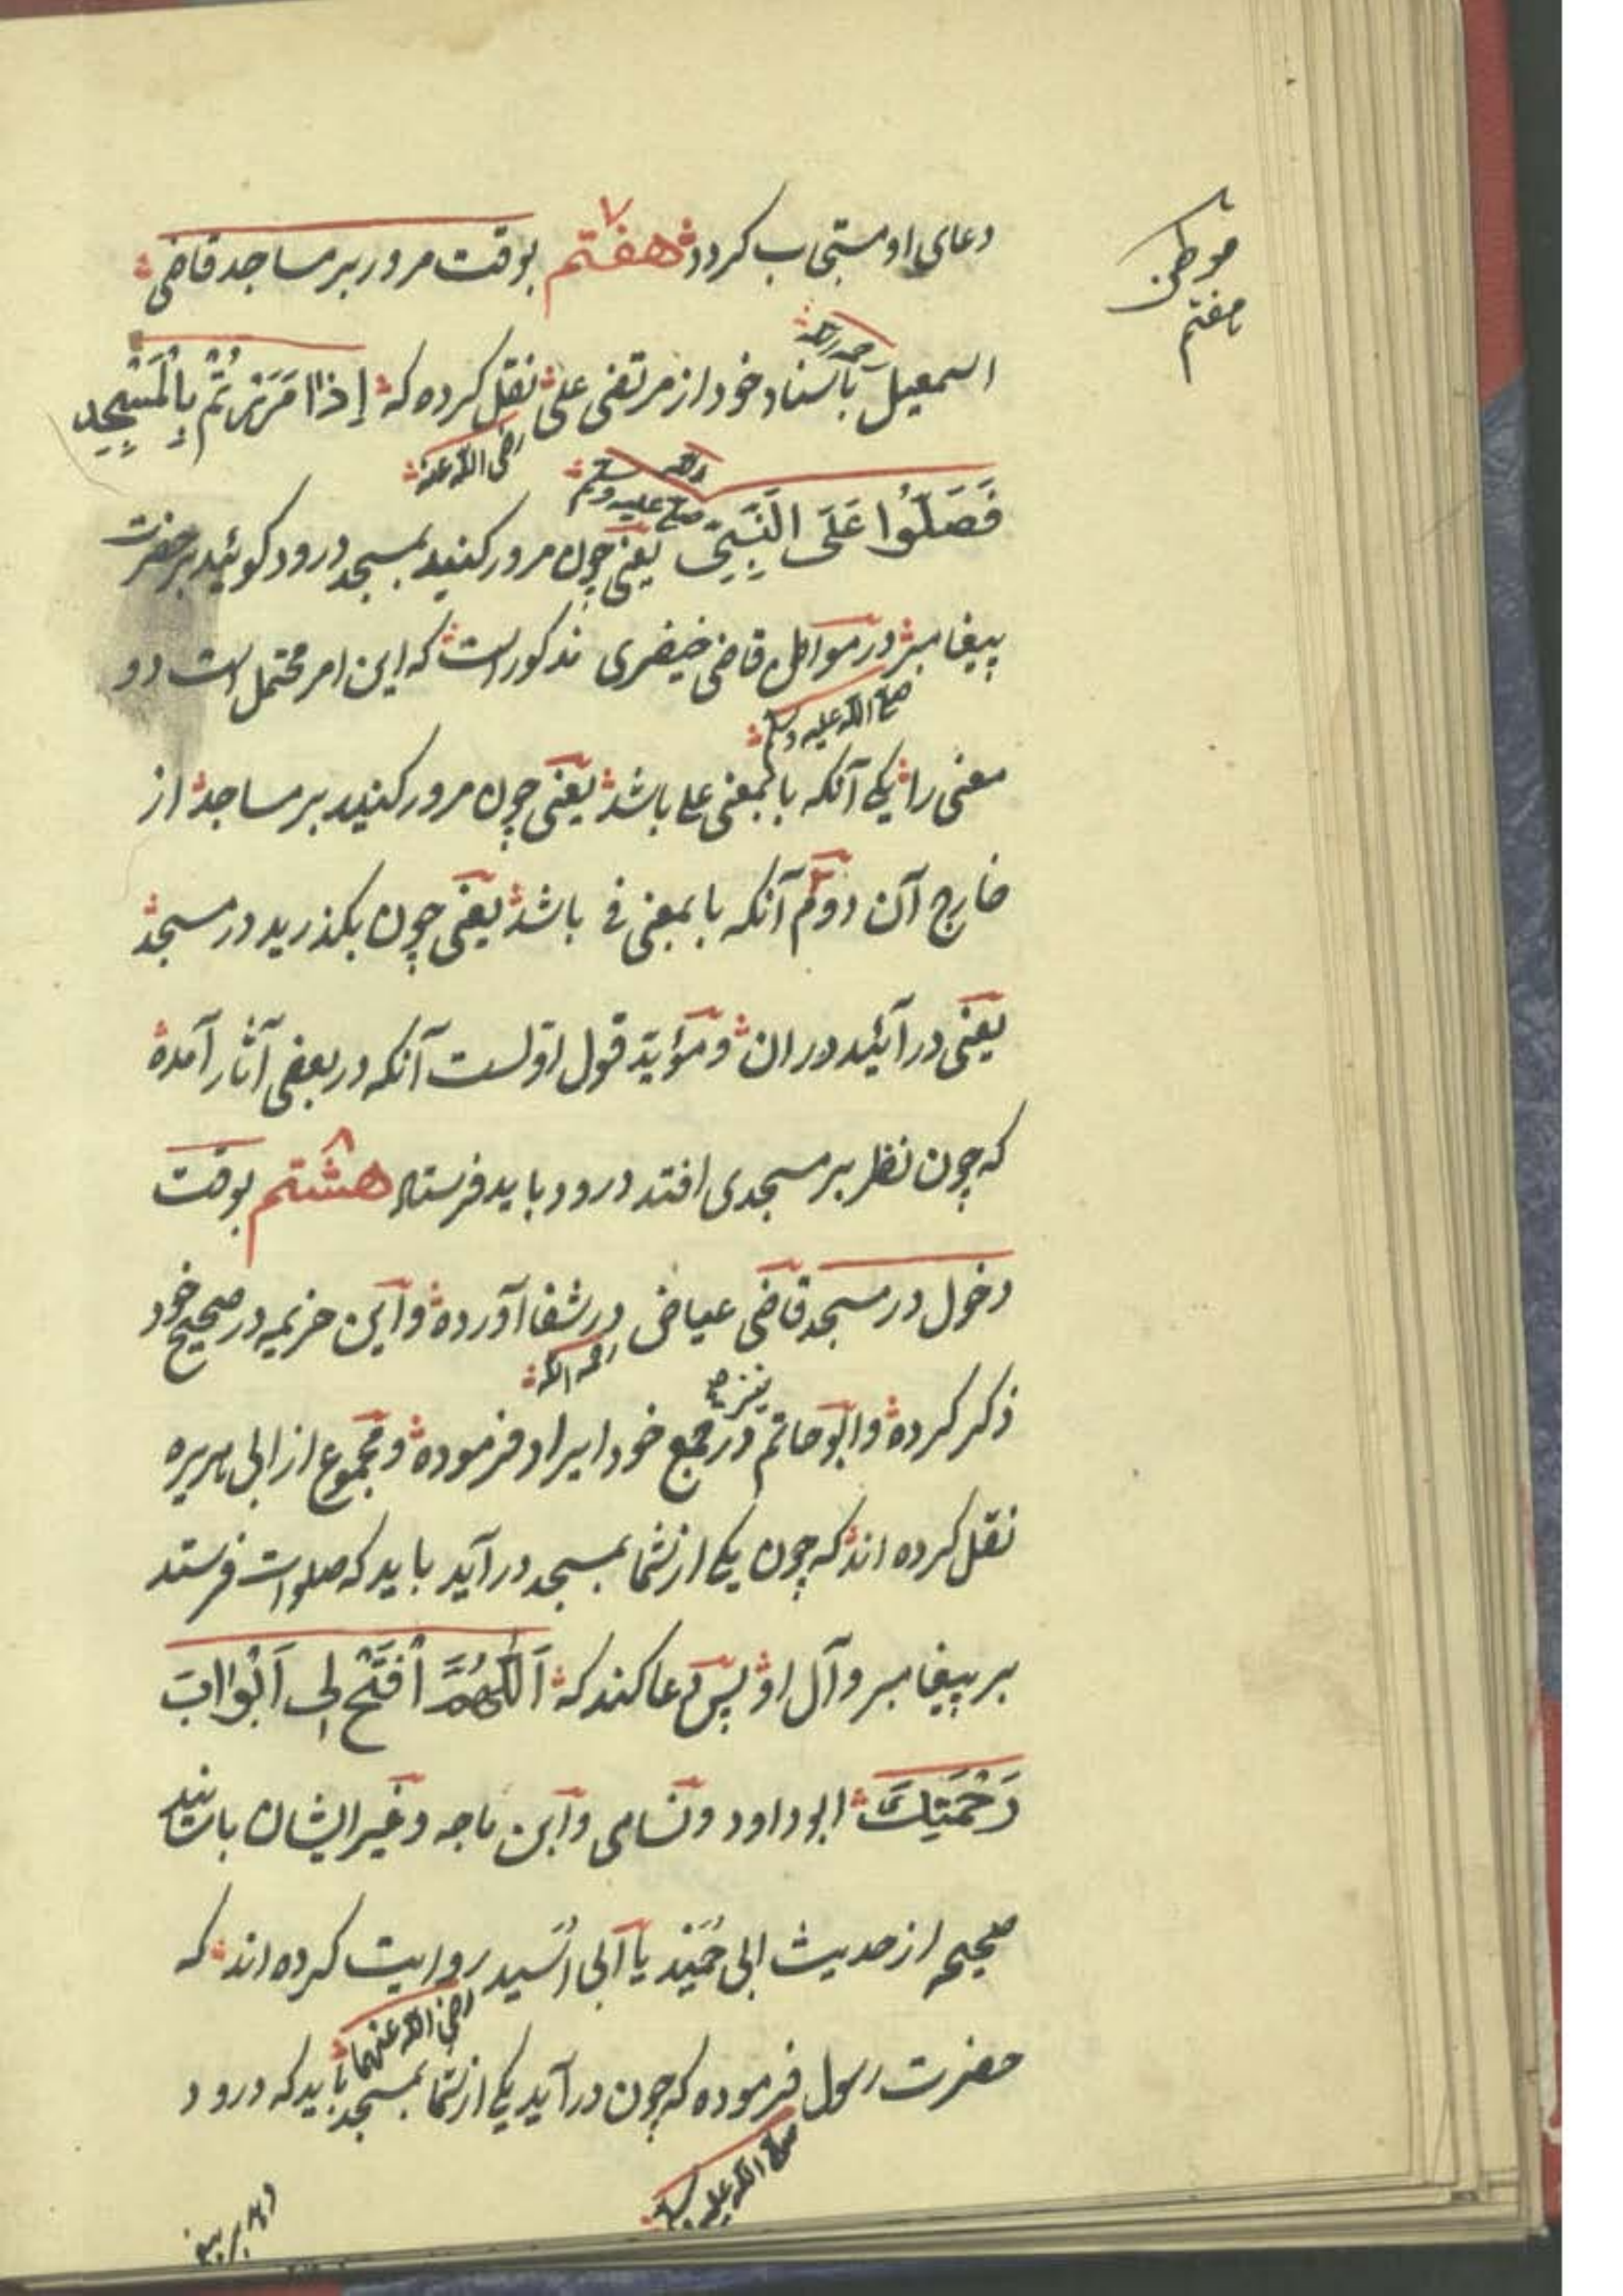 موطن
هفتم
دعای او مستجاب کردد هفتم ۷ بوقت مرور بر مساجد قاضی
اسمعیل رحمه الله باسناد خود از مرتضی علی رضی الله عنه نقل کرده که إِذَا مَرَرْتُمْ بِالْمَسْجِدِ
فَصَلُّوا عَلَی النَّبِیِّ صلی الله علیه وسلم یعنی چون مرور کنید بمسجد درود کوئید بر حضرت
پیغامبر صلی الله علیه وسلم در مواهل قاضی خیضری مذکور است که این امر محتمل است دو
معنی را یکی آنکه با بمعنی علی باشد یعنی چون مرور کنید بر مساجد از
خارج آن دوم آنکه با بمعنی فی باشد یعنی چون بکذرید در مسجد
یعنی در آئید در ان و مؤید قول اولست آنکه در بعضی آثار آمده
که چون نظر بر مسجدی افتد درود باید فرستاد هشتم ۸ بوقت
دخول در مسجد قاضی عیاض رحمه الله در شفا آورده و ابن خزیمه در صحیح خود
ذکر کرده و ابو حاتم نیز در جمع خود ایراد فرموده و مجموع از ابی هریره
نقل کرده اند که چون یکی از شما بمسجد در آید باید که صلوات فرستد
بر پیغامبر و آل او پس دعا کند که اَللّٰهُمَّ افْتَحْ لِی اَبْوَابَ
رَحْمَتِكَ ابو داود و نسامی و ابن ماجه و غیر ایشان باسانید
صحیحه از حدیث ابی حُمَیْد یا ابی اُسَید رضی الله عنهما روایت کرده اند که
حضرت رسول صلی الله علیه وسلم فرموده که چون در آید یکی از شما بمسجد باید که درود